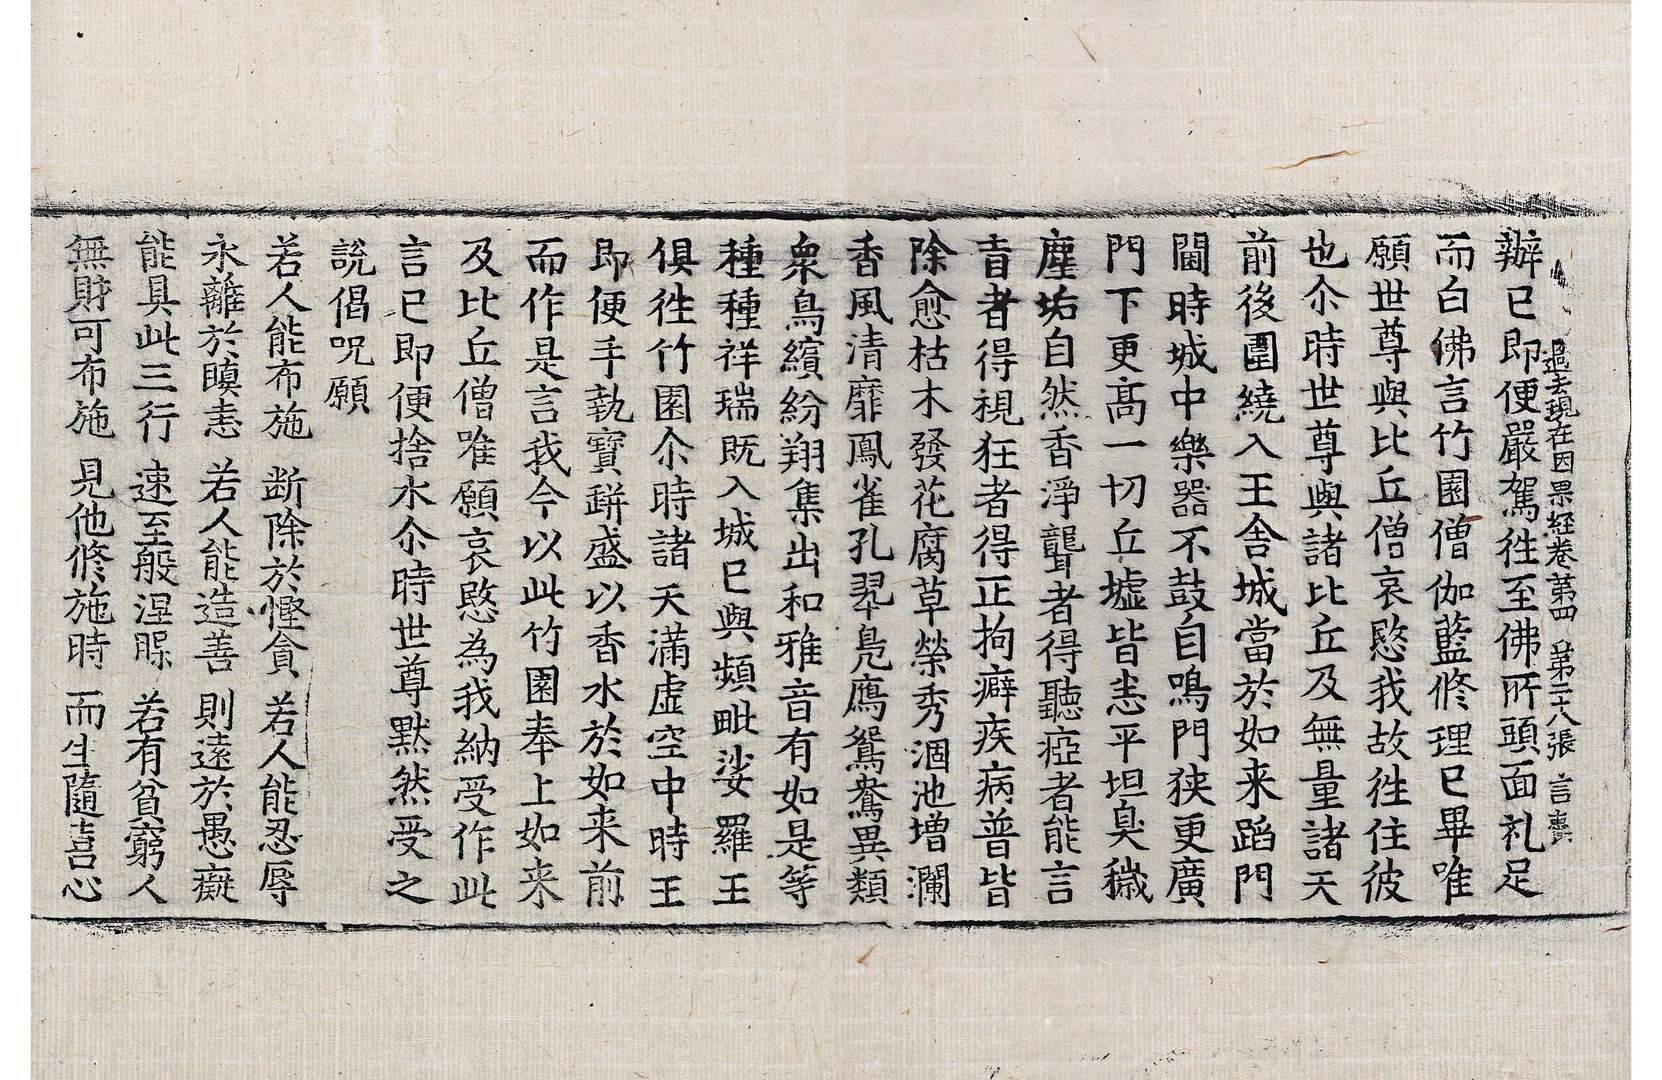 過去現在因果経巻第四 第二十八張 言
辦已即便嚴駕往至佛所頭面礼足
而白佛言竹園僧伽藍修理已畢唯
願世尊與比丘僧哀愍我故往住彼
也尒時世尊與諸比丘及無量諸天
前後圍繞入王舍城當於如来蹈門
閫時城中樂器不鼓自鳴門狹更廣
門下更髙一切丘墟皆悉平坦臭穢
塵垢自然香淨聾者得聽瘂者能言
盲者得視狂者得正拘癖疾病普皆
除愈枯木發花腐草榮秀涸池增瀾
香風清靡鳳雀孔翠鳧鴈鴛鴦異類
衆鳥繽紛翔集出和雅音有如是等
種種祥瑞既入城已與頻毗娑羅王
俱往竹園尒時諸天滿虛空中時王
即便手執寶缾盛以香水於如来前
而作是言我今以此竹園奉上如来
及比丘僧唯願哀愍為我納受作此
言已即便捨水尒時世尊默然受之
說偈呪願
若人能布施 断除於慳貪 若人能忍辱
永離於瞋恚 若人能造善 則遠於愚癡
能具此三行 速至般涅槃 若有貧窮人
無財可布施 見他修施時 而生隨喜心